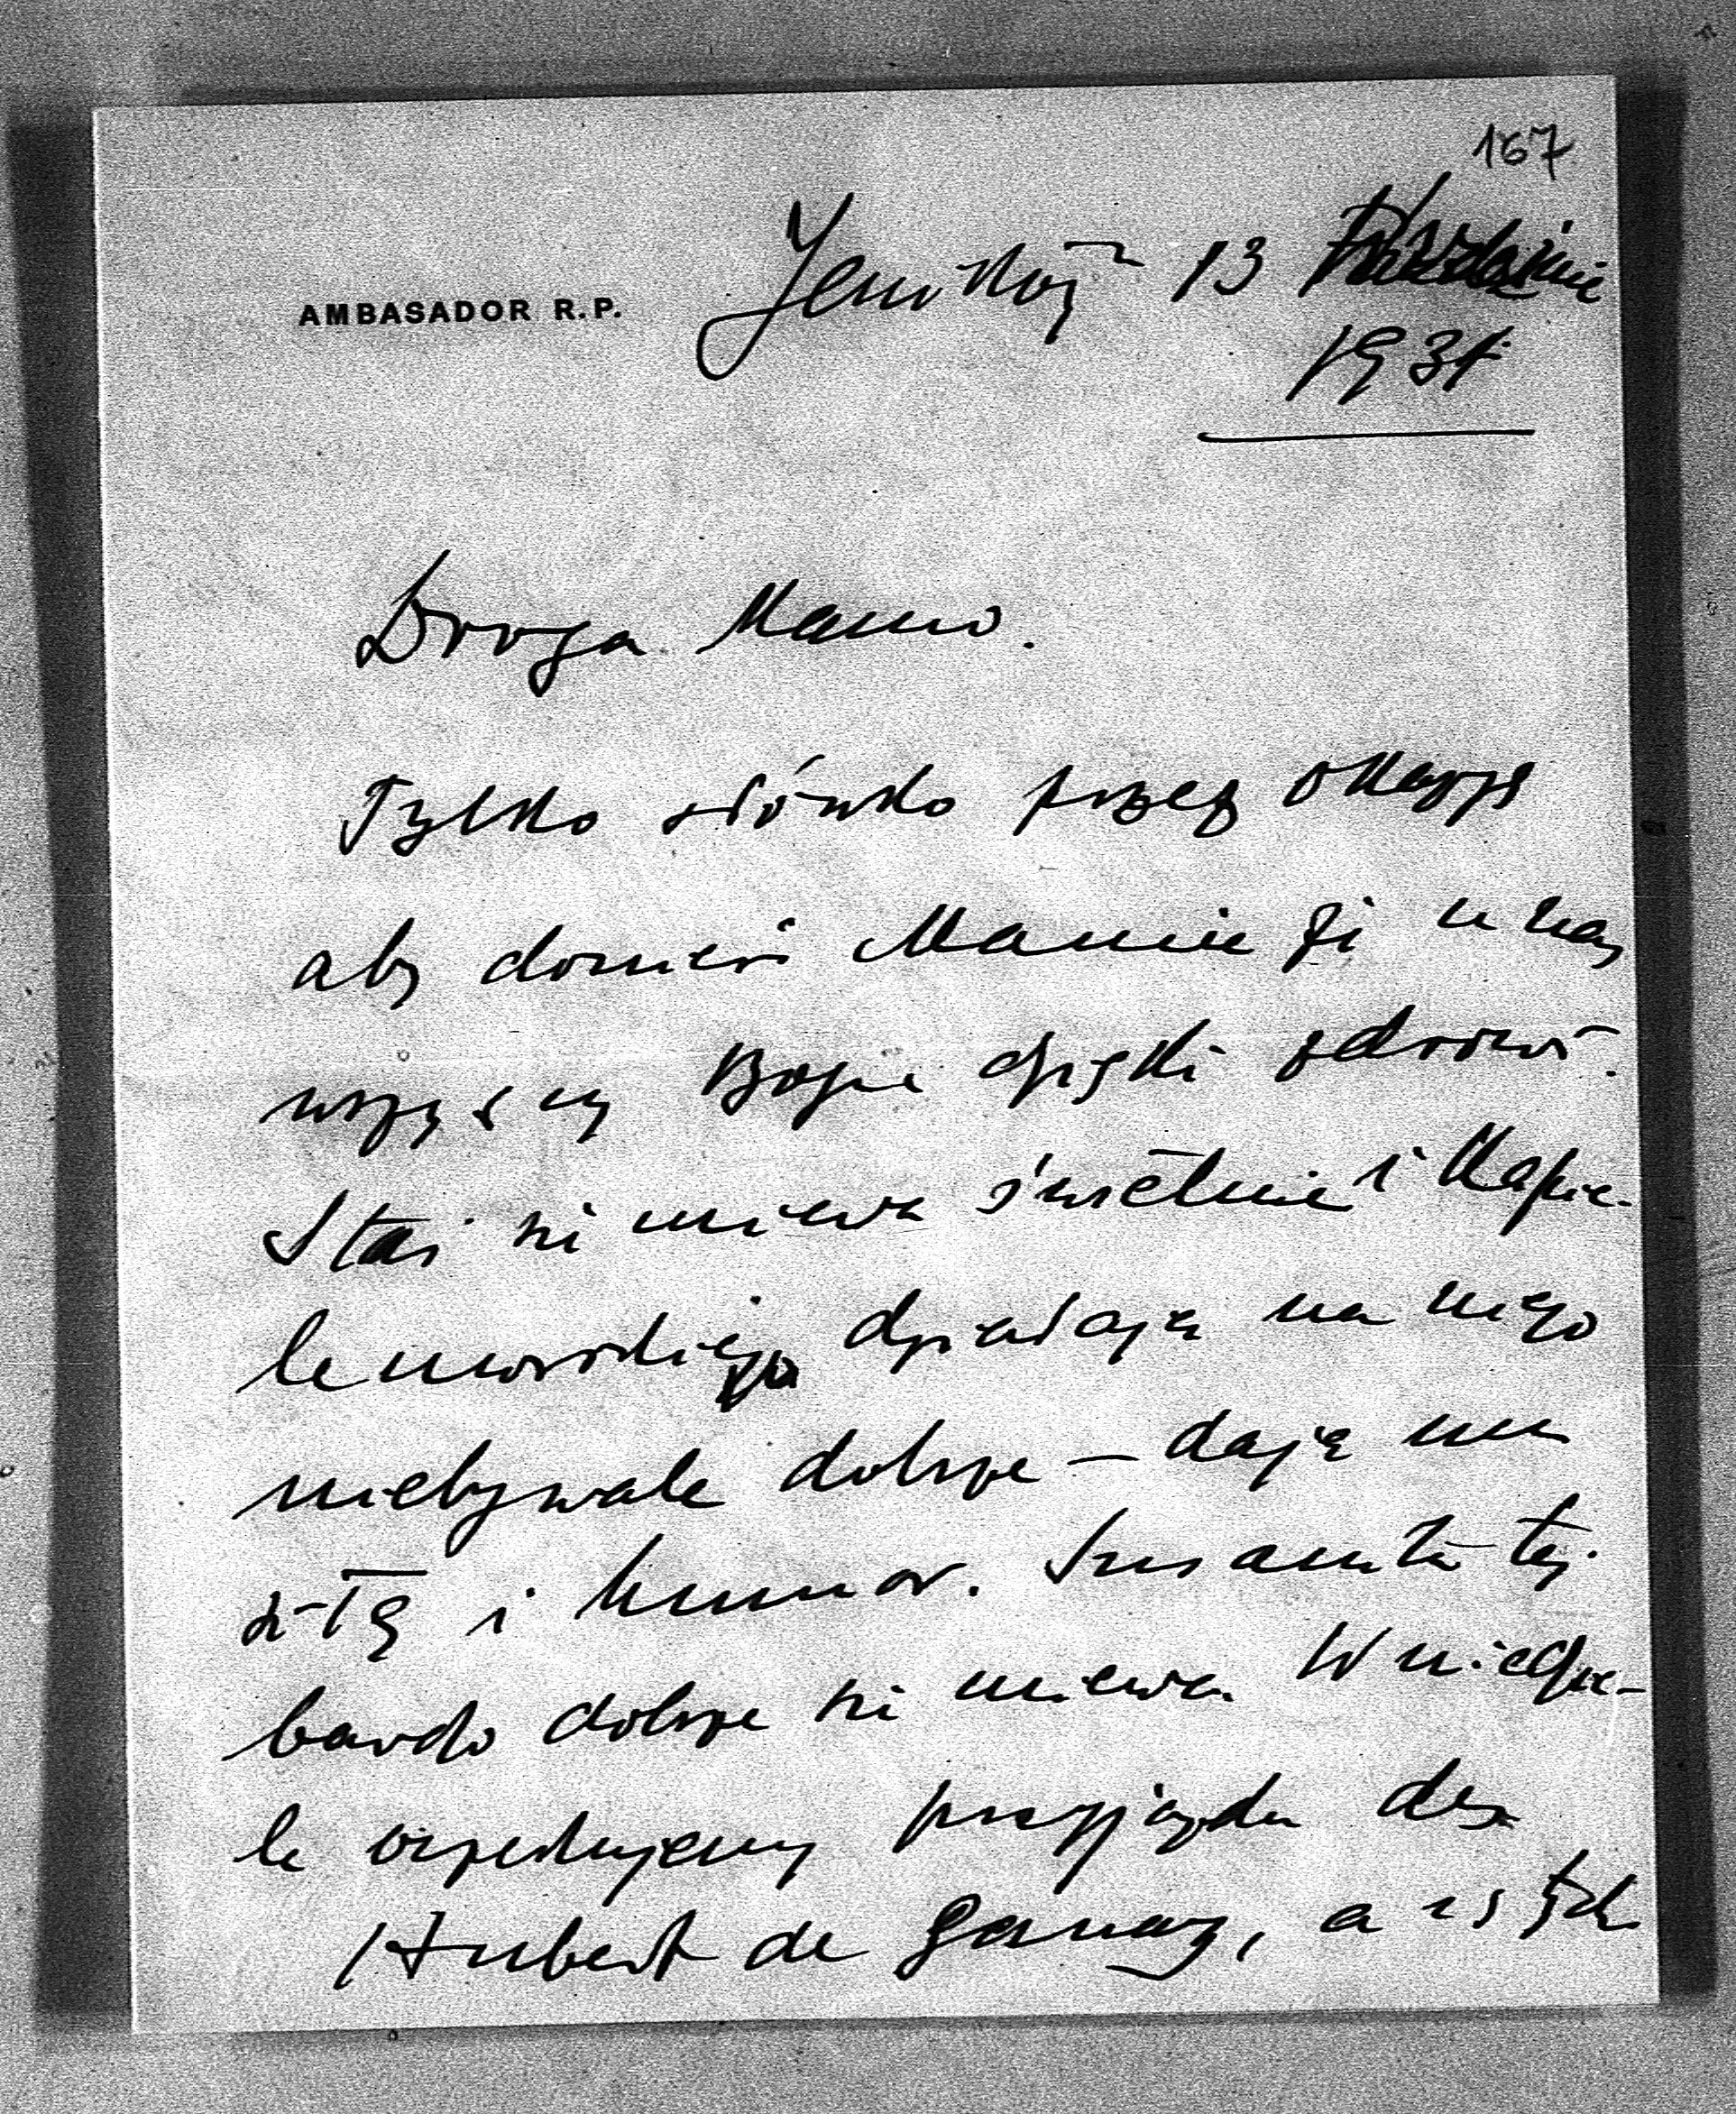 167
AMBASADOR R.P. Jeniköj 13
1931
Droga Mamo.
Tylko słówko przez okazję
aby donieść Mamie że u nas
wszyscy Bogu dzięki zdrowi.
Staś się miewa świetnie i kąpie-
le morskie działają na niego
niebywale dobrze – dają mu
siłę i humor. Zuzanna też
bardzo dobrze się miewa. W niedzie-
le oczekujemy przyjazdu
Hubert de Ganay, a